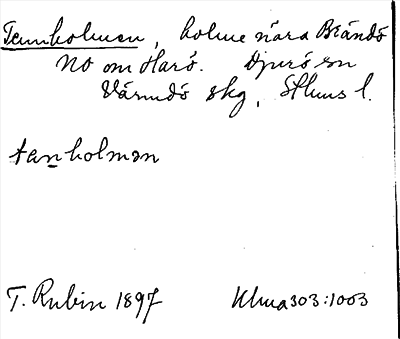 Tennholmen, holme nära Brändö
NO om Harö. Djurö sn
Värmdö skg, Sthms l.
tanholmən
T. Rubin 1897 Ulma 303:1003